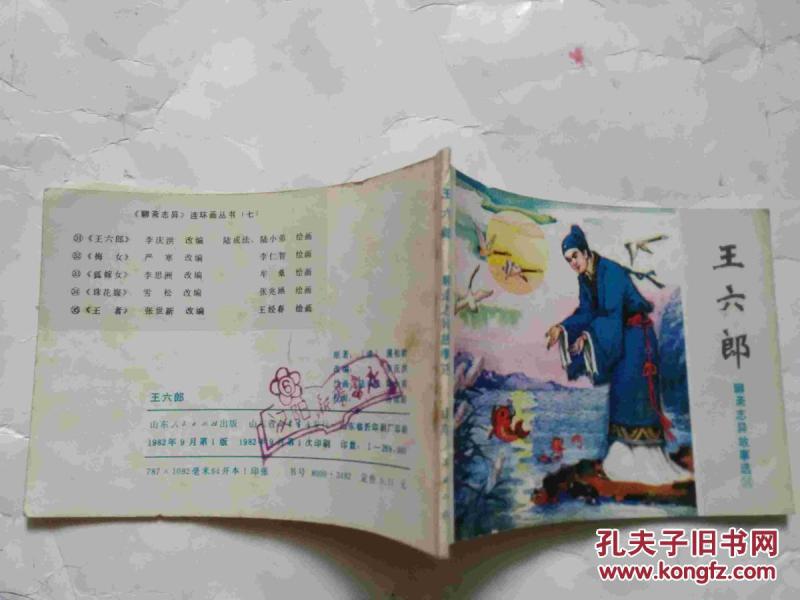 《聊斋志异》连环画丛书(七)
㉛《王六郎》 李庆洪 改编 陆成法、陆小弟 绘画
㉜《梅女》 严寒 改编 李仁智 绘画
㉝《狐嫁女》 李思洲 改编 牟桑 绘画
㉞《珠花媒》 雪松 改编 张兆瀛 绘画
㉟《王者》 张世新 改编 王经春 绘画
王六郎
山东人民出版社出版
1982年9月第1版 1982年9月第1次印刷 印数:1—
787×1092毫米64开本1印张 书号 8099·2482 定价
王六郎
王六郎
聊斋志异故事选
孔夫子旧书网
www.kongfz.com